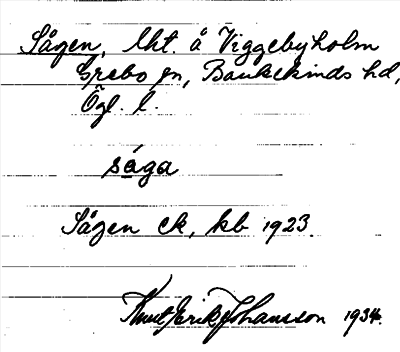 Sågen, lht. å Viggebyholm
Grebo sn, Bankekinds hd,
Ögl. l.
sága
Sågen ek, kb 1923.
Knut Erik Johansson 1934.